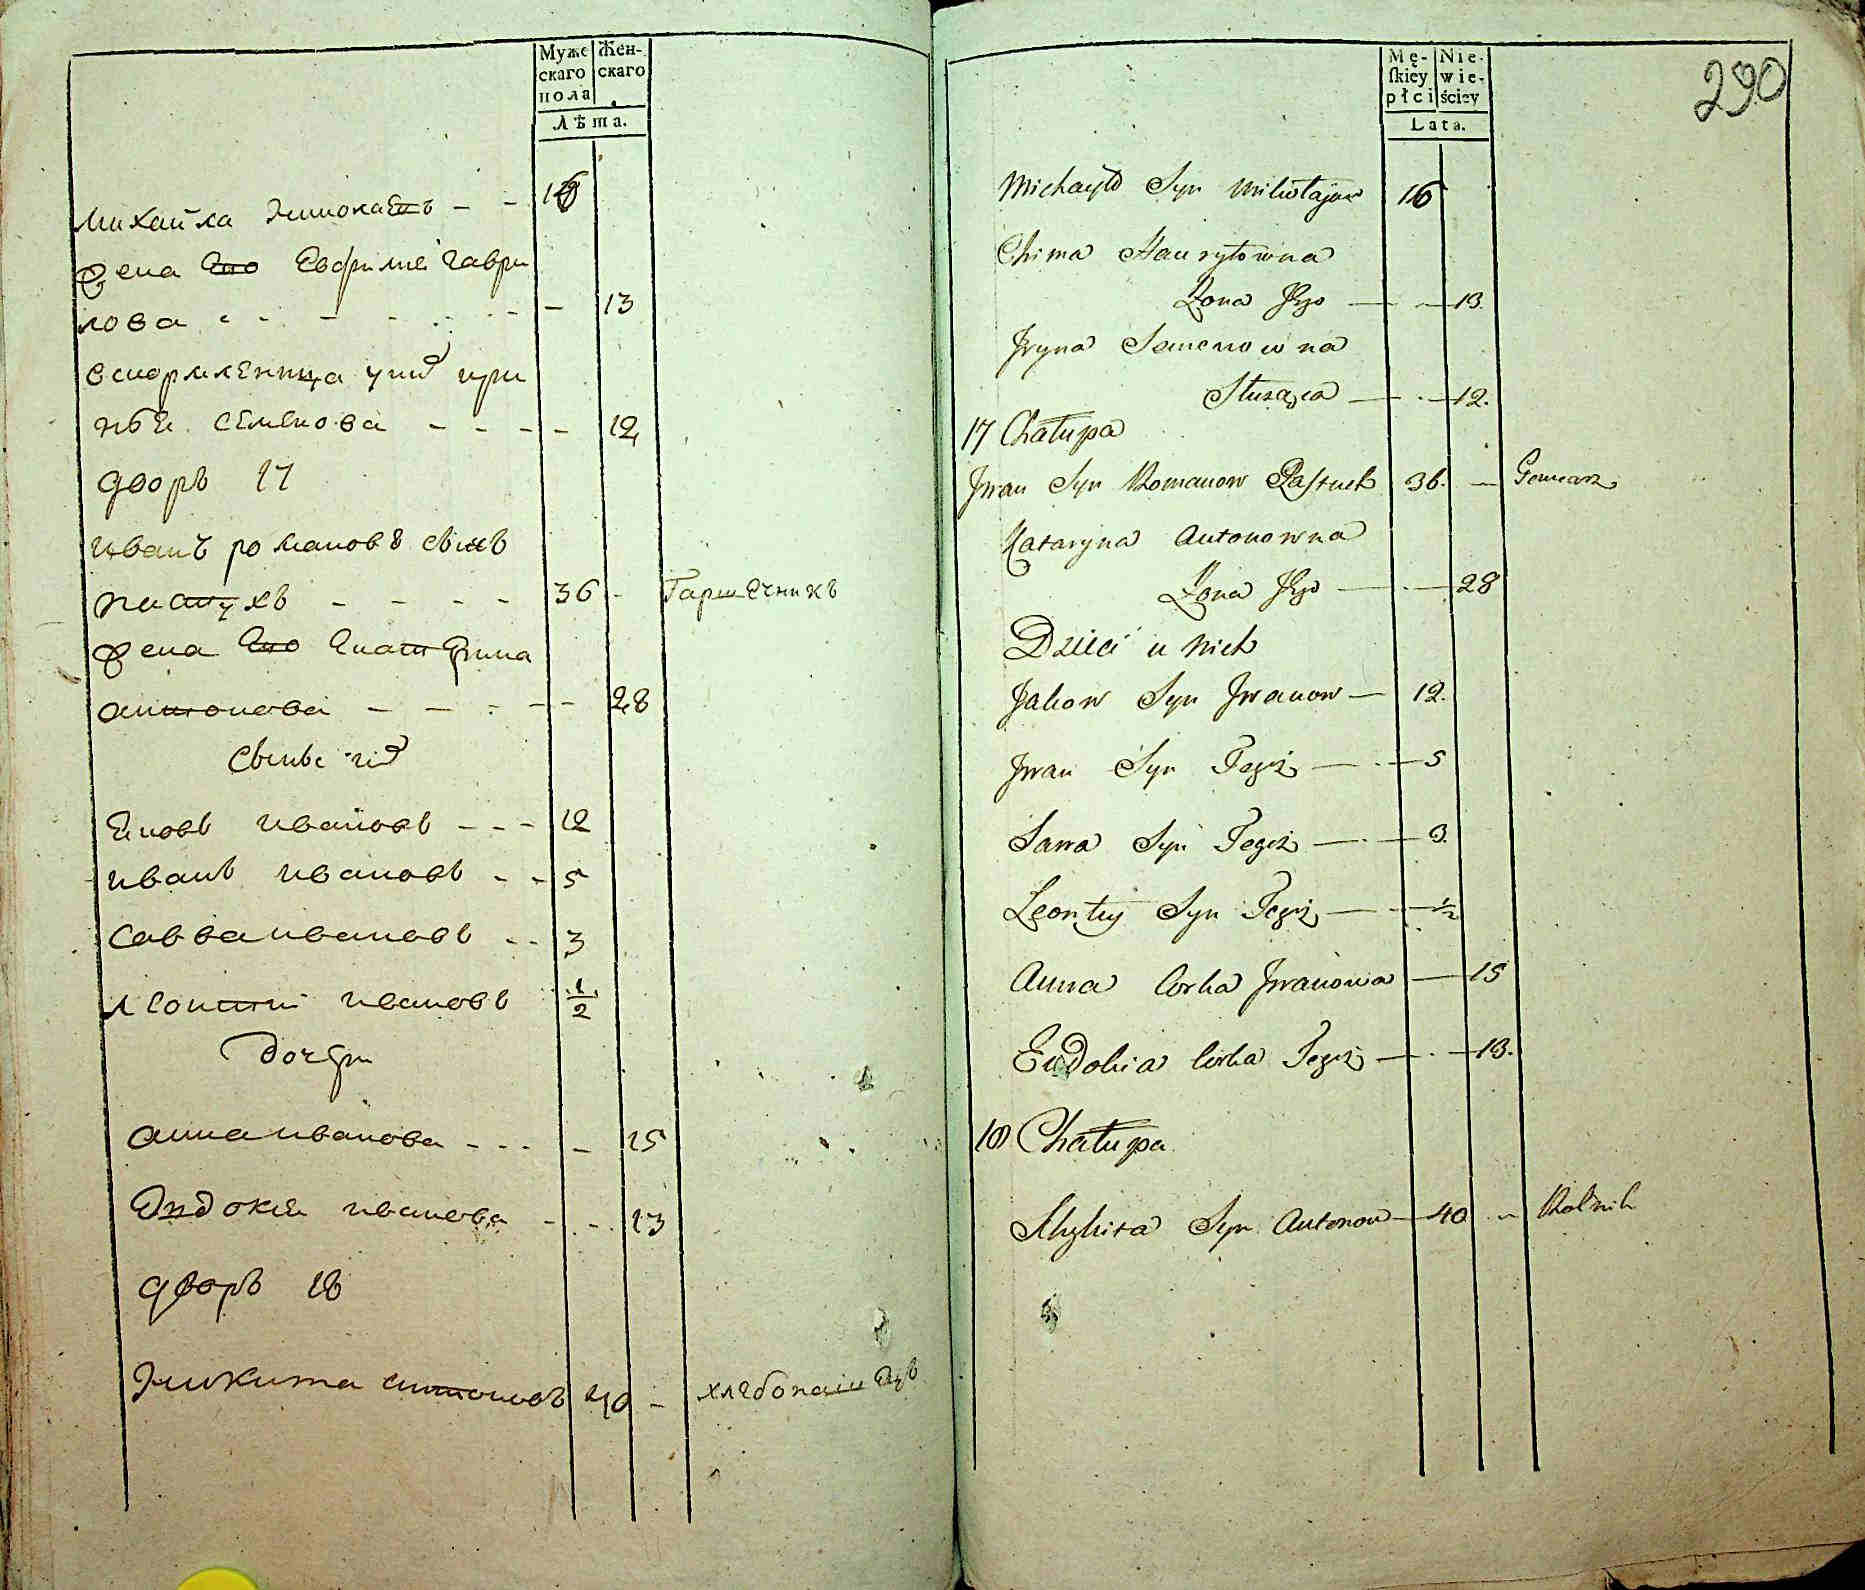 Муже скаго пола
Жен- скаго
Лѣта.
Михаила Николаевъ - - 16
жена его Евфимиѣ Гаври
лова - - - - 13
Вскормленница у них Ири
нѣя Семенова - - - - 12
дворъ 17
Иванъ Романовъ сынъ
пастухъ - - - - 36 - Гаршечникъ
жена его Екатерина
Антонова - - - - - 28
Сыновѣ их
Яковъ Ивановъ - - - 12
Иванъ Ивановъ - - 5
Савва Ивановъ - - 3
Леонтий Ивановъ 1/2
дочери
Анна Иванова - - - - 15
Евдокия Иванова - - - 13
дворъ 18
Никита Антоновъ 40 - хлебопашецъ
Mę- ſkiey płci
Nie- wie- ściey
Lata.
290
Michayło Syn Mikołajow 16
Chima Hauryłowna
Żona Jego — — 13.
Jryna Semenowna
Służąca — — 12.
17 Chałupa
Jwan Syn Romanow Pastuch 36. — Goncarz
Kataryna Antonowna
Żona Jego — — 28
Dzieci u nich
Jakow Syn Jwanow — 12.
Jwan Syn Tegoż — — 5
Sawa Syn Tegoż — — 3.
Leonty Syn Tegoż — — 1/2
Anna Corka Jwanowa — 15
Eudokia Corka Tegoż — — 13.
18 Chałupa
Mykita Syn Antonow — 40 — Rolnik